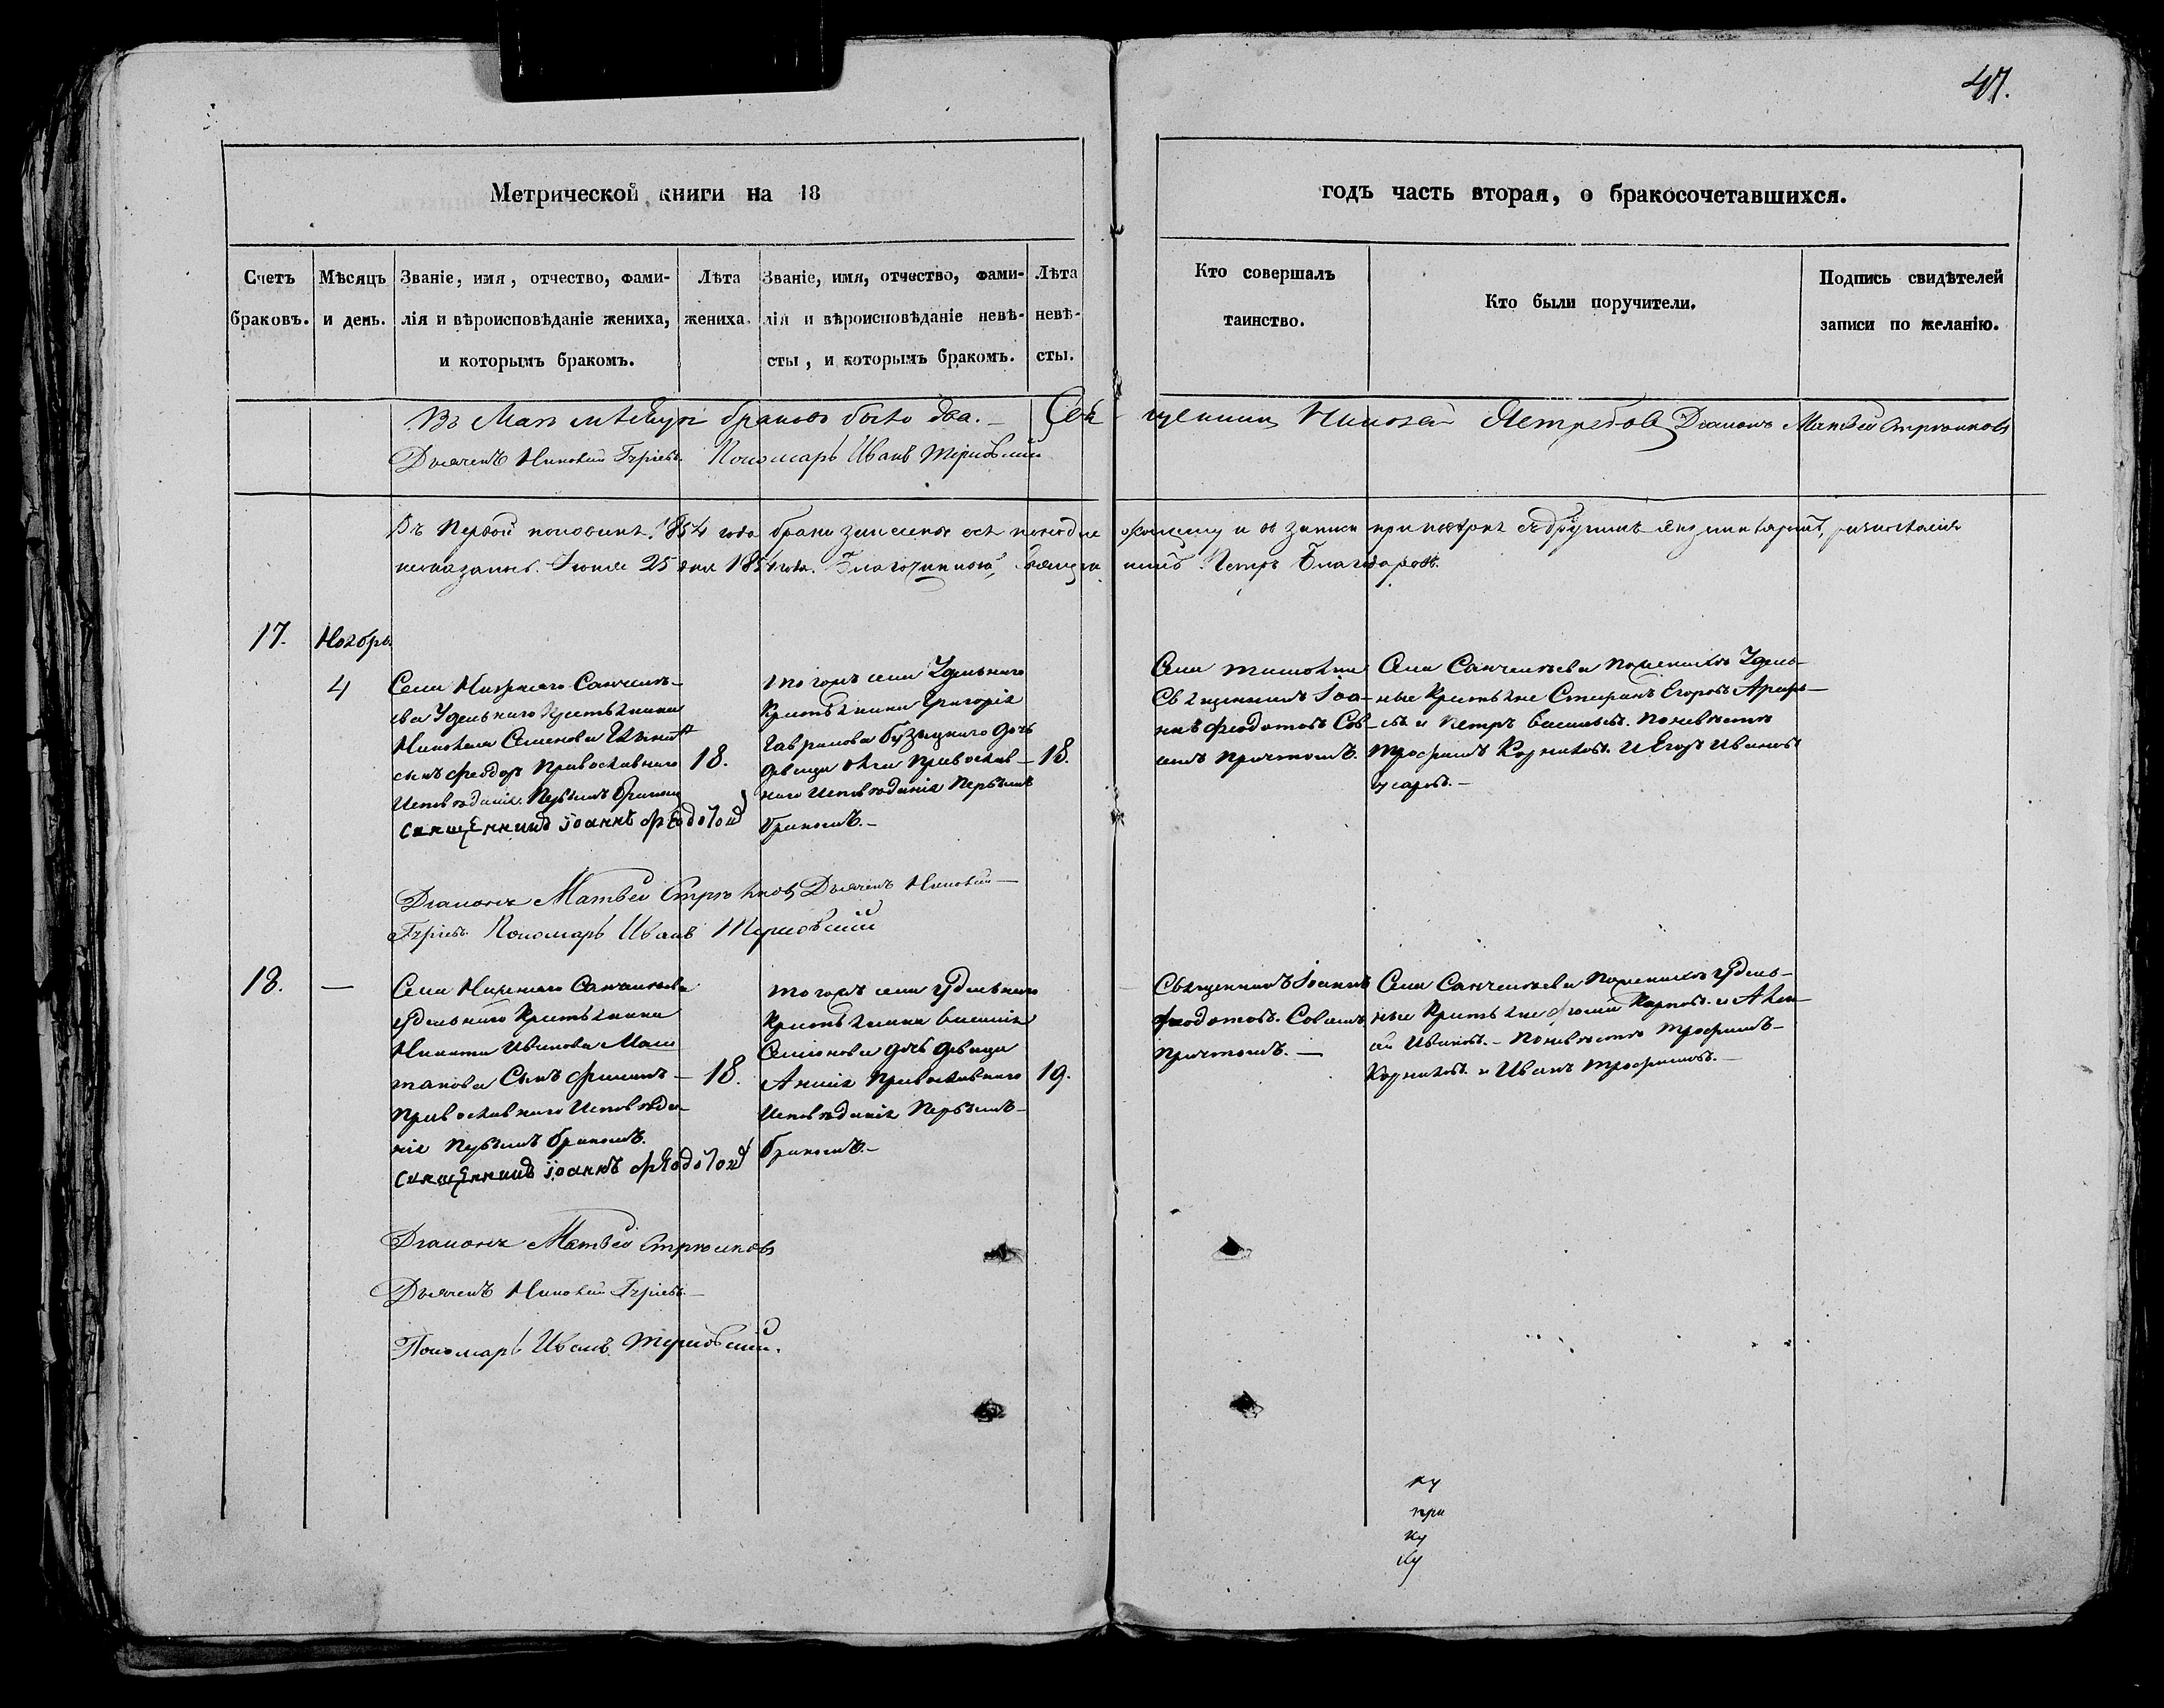 47.
Метрической книги на 18
годъ часть вторая, о бракосочетавшихся.
Счетъ
браковъ.
Мѣсяцъ
и день.
Званіе, имя, отчество, фами-
лія и вѣроисповѣданіе жениха,
и которымъ бракомъ.
Лѣта
жениха.
Званіе, имя, отчество, фами-
лія и вѣроисповѣданіе невѣ-
сты, и которымъ бракомъ.
Лѣта
невѣ-
сты.
Кто совершалъ
таинство.
Кто были поручители.
Подпись свидѣтелей
записи по желанію.
Въ Маѣ мѣсяцѣ браковъ было два. — Священник Николай Ястребовъ Діаконъ Матвей Стрючковъ
Дьячекъ Николай Гурьевъ. Пономарь Иванъ Терновскій
Въ первой половинѣ 1854 года браки записаны и въ записи при повѣркѣ съ другимъ экземпляромъ, разногласія
не оказалось. Іюня 25 дня 1854 года. Благочинной, Священникъ Петръ Благодаровъ.
17.
Ноябрь
4
Села Нижняго Санчелѣ-
ева Удельнаго Крестьянина
Николая Семенова
сынъ Феодоръ Православнаго
Исповѣданія. Первымъ бракомъ
священникъ іоаннъ феодотов
18.
того жъ села Удельнаго
Крестьянина Григорія
Гаврилова Бузыцкаго дочь
девица Православ-
наго Исповѣданія Первымъ
бракомъ. —
18.
Села
Священникъ Іоа-
ннъ Феодотовъ Сов-
емъ причтомъ.
Села Санчелѣева По женихѣ Удель-
ные Крестьяне Стефанъ Егоровъ
и Петръ Васильевъ. По невѣстѣ
Трофимъ Корниловъ. И Егоръ Ивановъ
Гусаровъ. —
Діаконъ Матвей Стрючковъ Дьячекъ Николай —
Гурьевъ. Пономарь Иванъ Терновскій
18.
—
Села Нижняго Санчелѣева
Удельнаго Крестьянина
Никиты Иванова Маш
танова Сынъ Филипъ —
Православнаго Исповѣда-
нія Первымъ бракомъ.
священникъ іоаннъ феодотов
18.
того жъ села Удельнаго
Крестьянина Василія
Семенова дочь девица
Анисія Православнаго
Исповѣданія Первымъ —
бракомъ. —
19.
Священникъ Іоаннъ
Феодотовъ. Совсемъ
Причтомъ. —
Села Санчелѣева По женихѣ Удель-
ные Крестьяне Карповъ. и Алек-
ей Ивановъ. — По невѣстѣ Трофимъ —
Корниловъ. и Иванъ Трофимовъ. —
Діаконъ Матвей Стрючковъ
Дьячекъ Николай Гурьевъ —
Пономарь Иванъ Терновскій.
ку
при
ку
ку